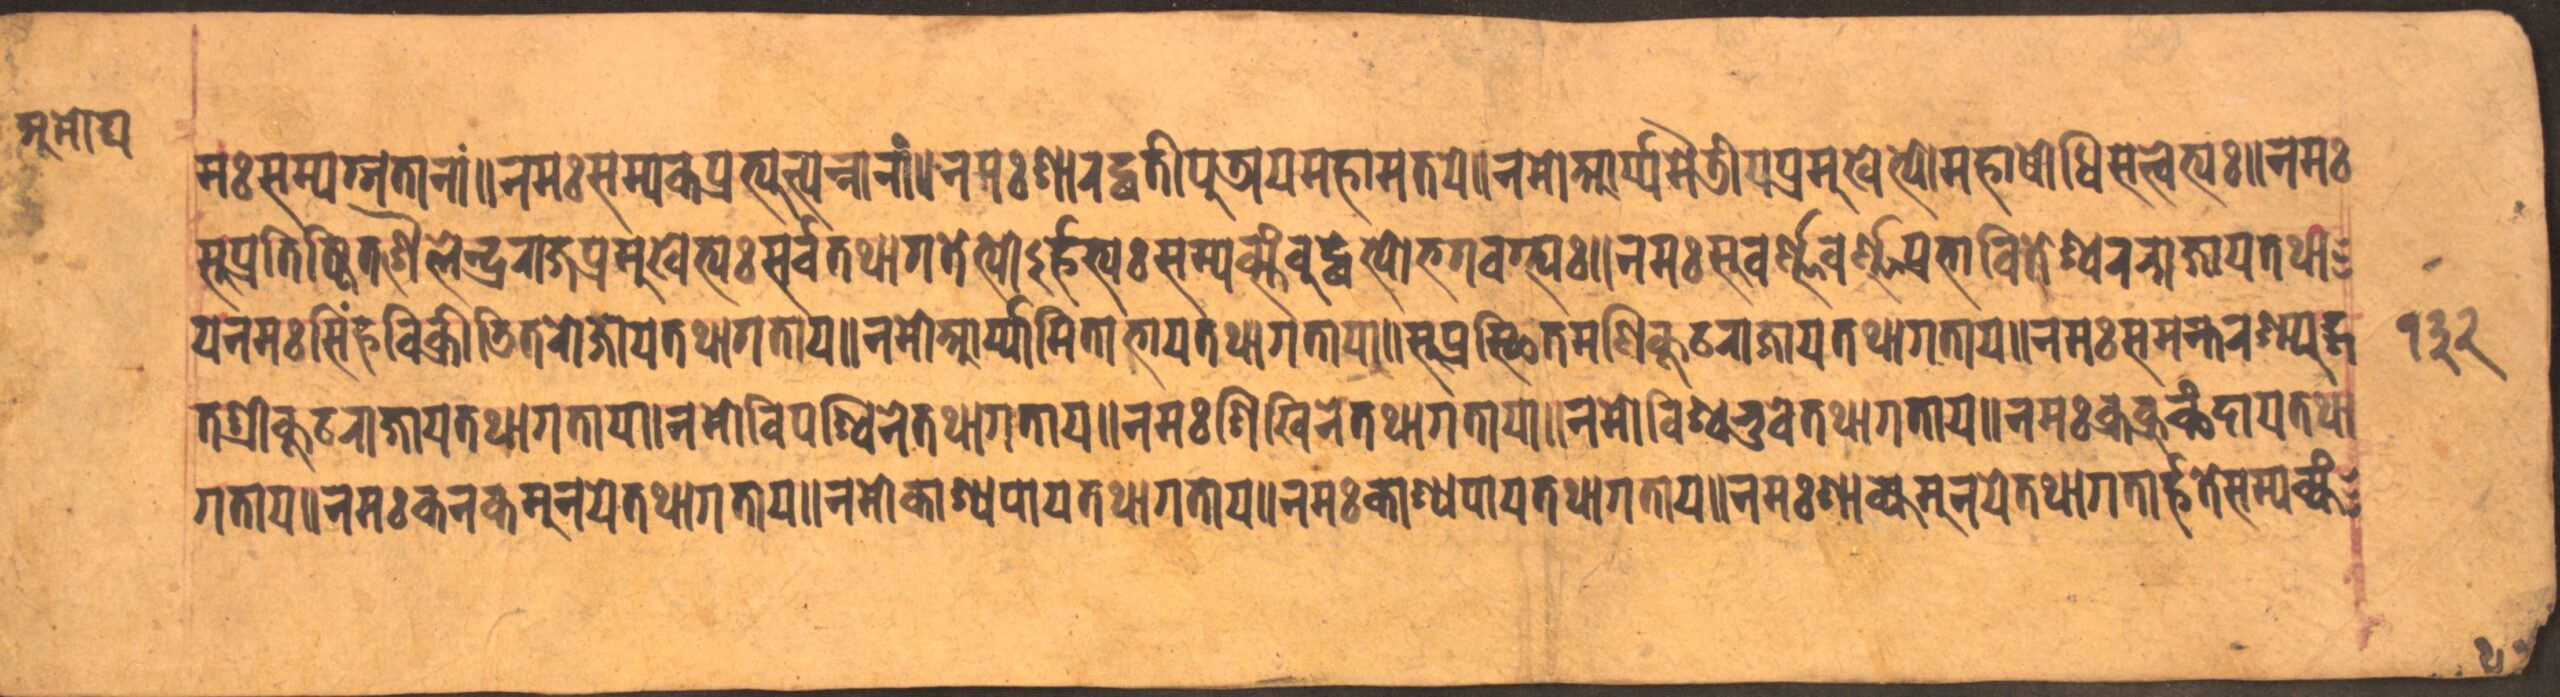 अमोघ
मः सम्यग्गतानां॥ नमः सम्यक्प्रत्युत्पन्नानां॥ नमः शारद्वतीपुत्राय महामतये॥ नमो आर्य्यमैत्रीयप्रमुखेभ्यो महाबोधिसत्त्वेभ्यः॥ नमः
सुप्रतिष्ठितशैलेन्द्रराजप्रमुखेभ्यः सर्वतथागतेभ्योऽर्हभ्यः सम्यक्संबुद्धेभ्यो भगवद्भ्यः॥ नमः सुवर्ण्णवर्ण्णप्रभा श्वरराजाय तथा
य नमः सिंहविक्रीडितराजाय तथागताय॥ नमो आर्य्यामिताभाय तथागताय॥ सुप्रस्थितमणिकूटराजाय तथागताय॥ नमः समन्तरश्म्युद्ग
तश्रीकूटराजाय तथागताय॥ नमो विपश्विने तथागताय॥ नमः शिखिने तथागताय॥ नमो विश्वभुवे तथागताय॥ नमः क्रकुच्छंदाय तथा
गताय॥ नमः कनकमुनये तथागताय॥ नमो काश्यपाय तथागताय॥ नमः काश्यपाय तथागताय॥ नमः शाक्यमुनये तथागतार्हते सम्यक्सं
१३२